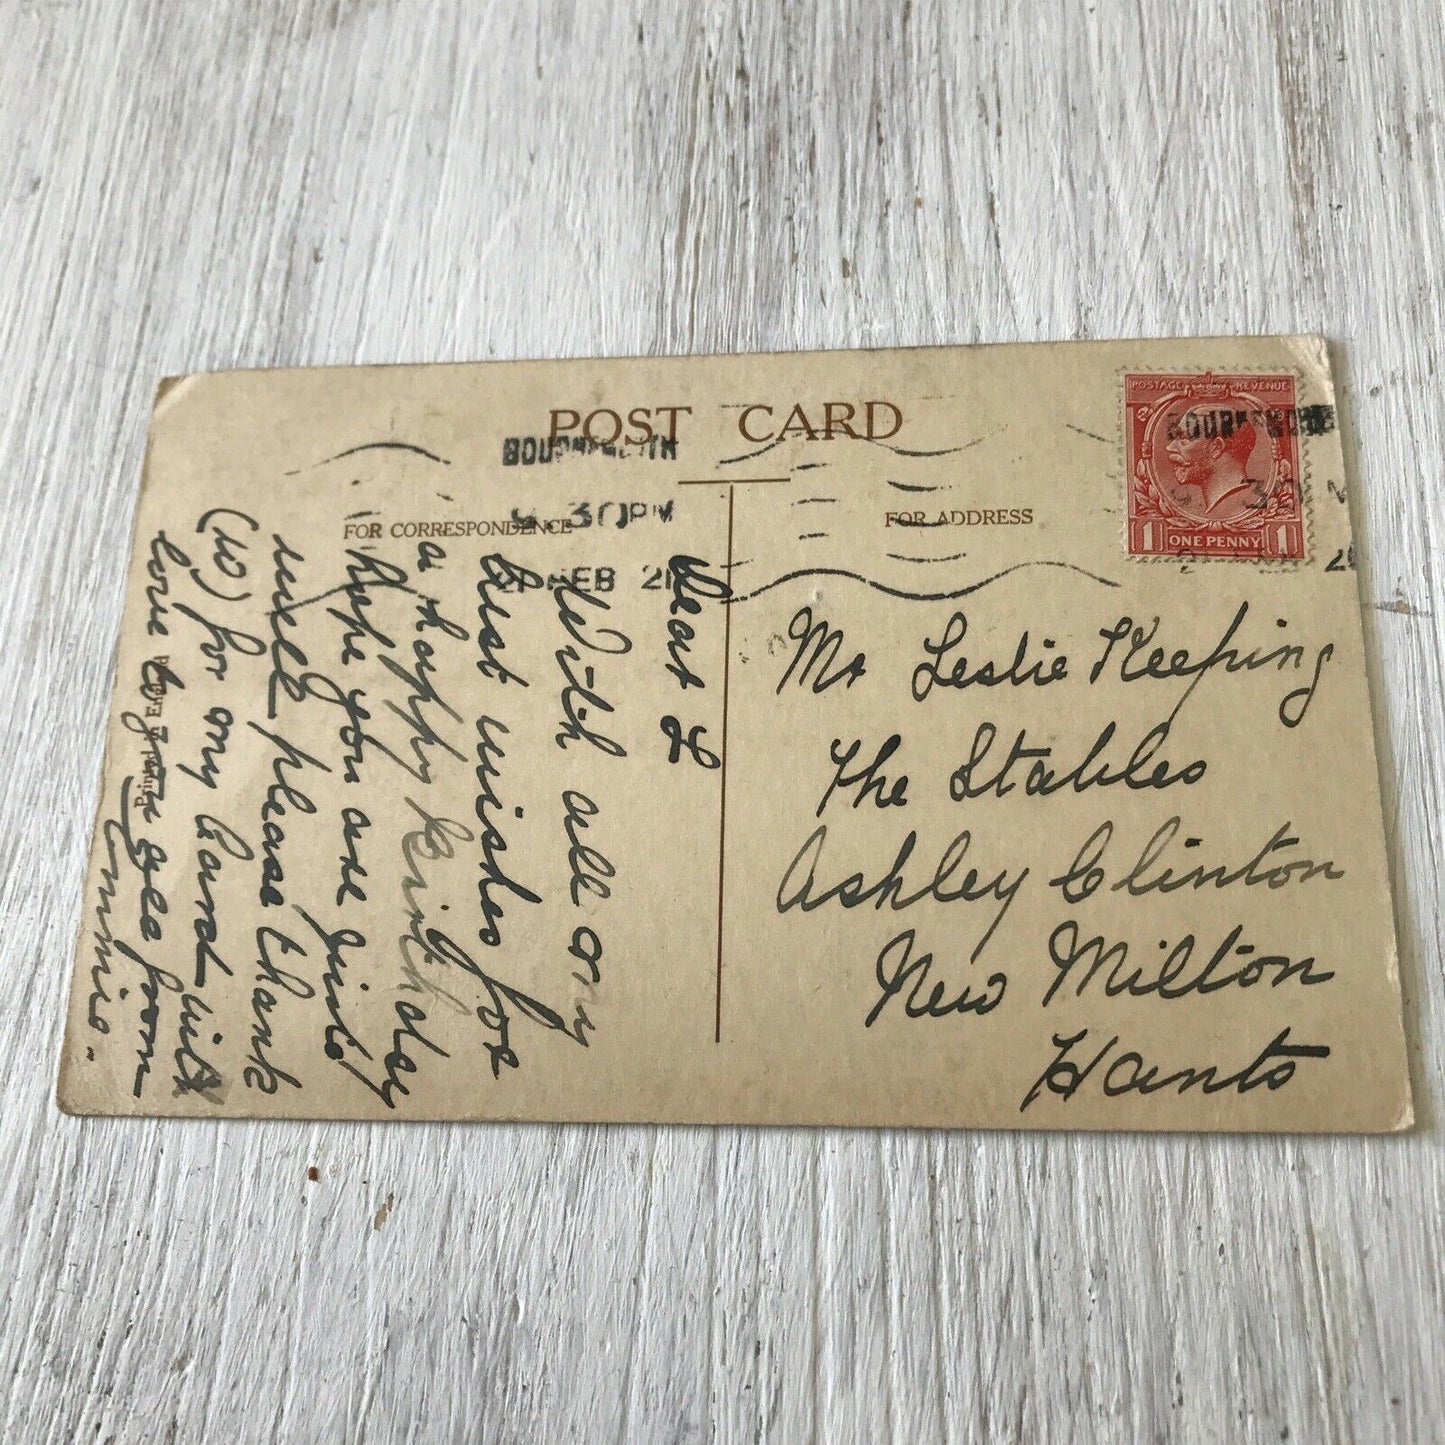 POST CARD
FOR CORRESPONDENCE
FOR ADDRESS
POSTAGE REVENUE
1 ONE PENNY 1
BOURNEMOUTH
30 PM
FEB 21
Dear L
With all my
best wishes for
a happy Birthday
hope you are quite
well please thank
for my card with
love to you from
Annie.
Printed in England
Mr Leslie Keeping
The Stables
Ashley Clinton
New Milton
Hants